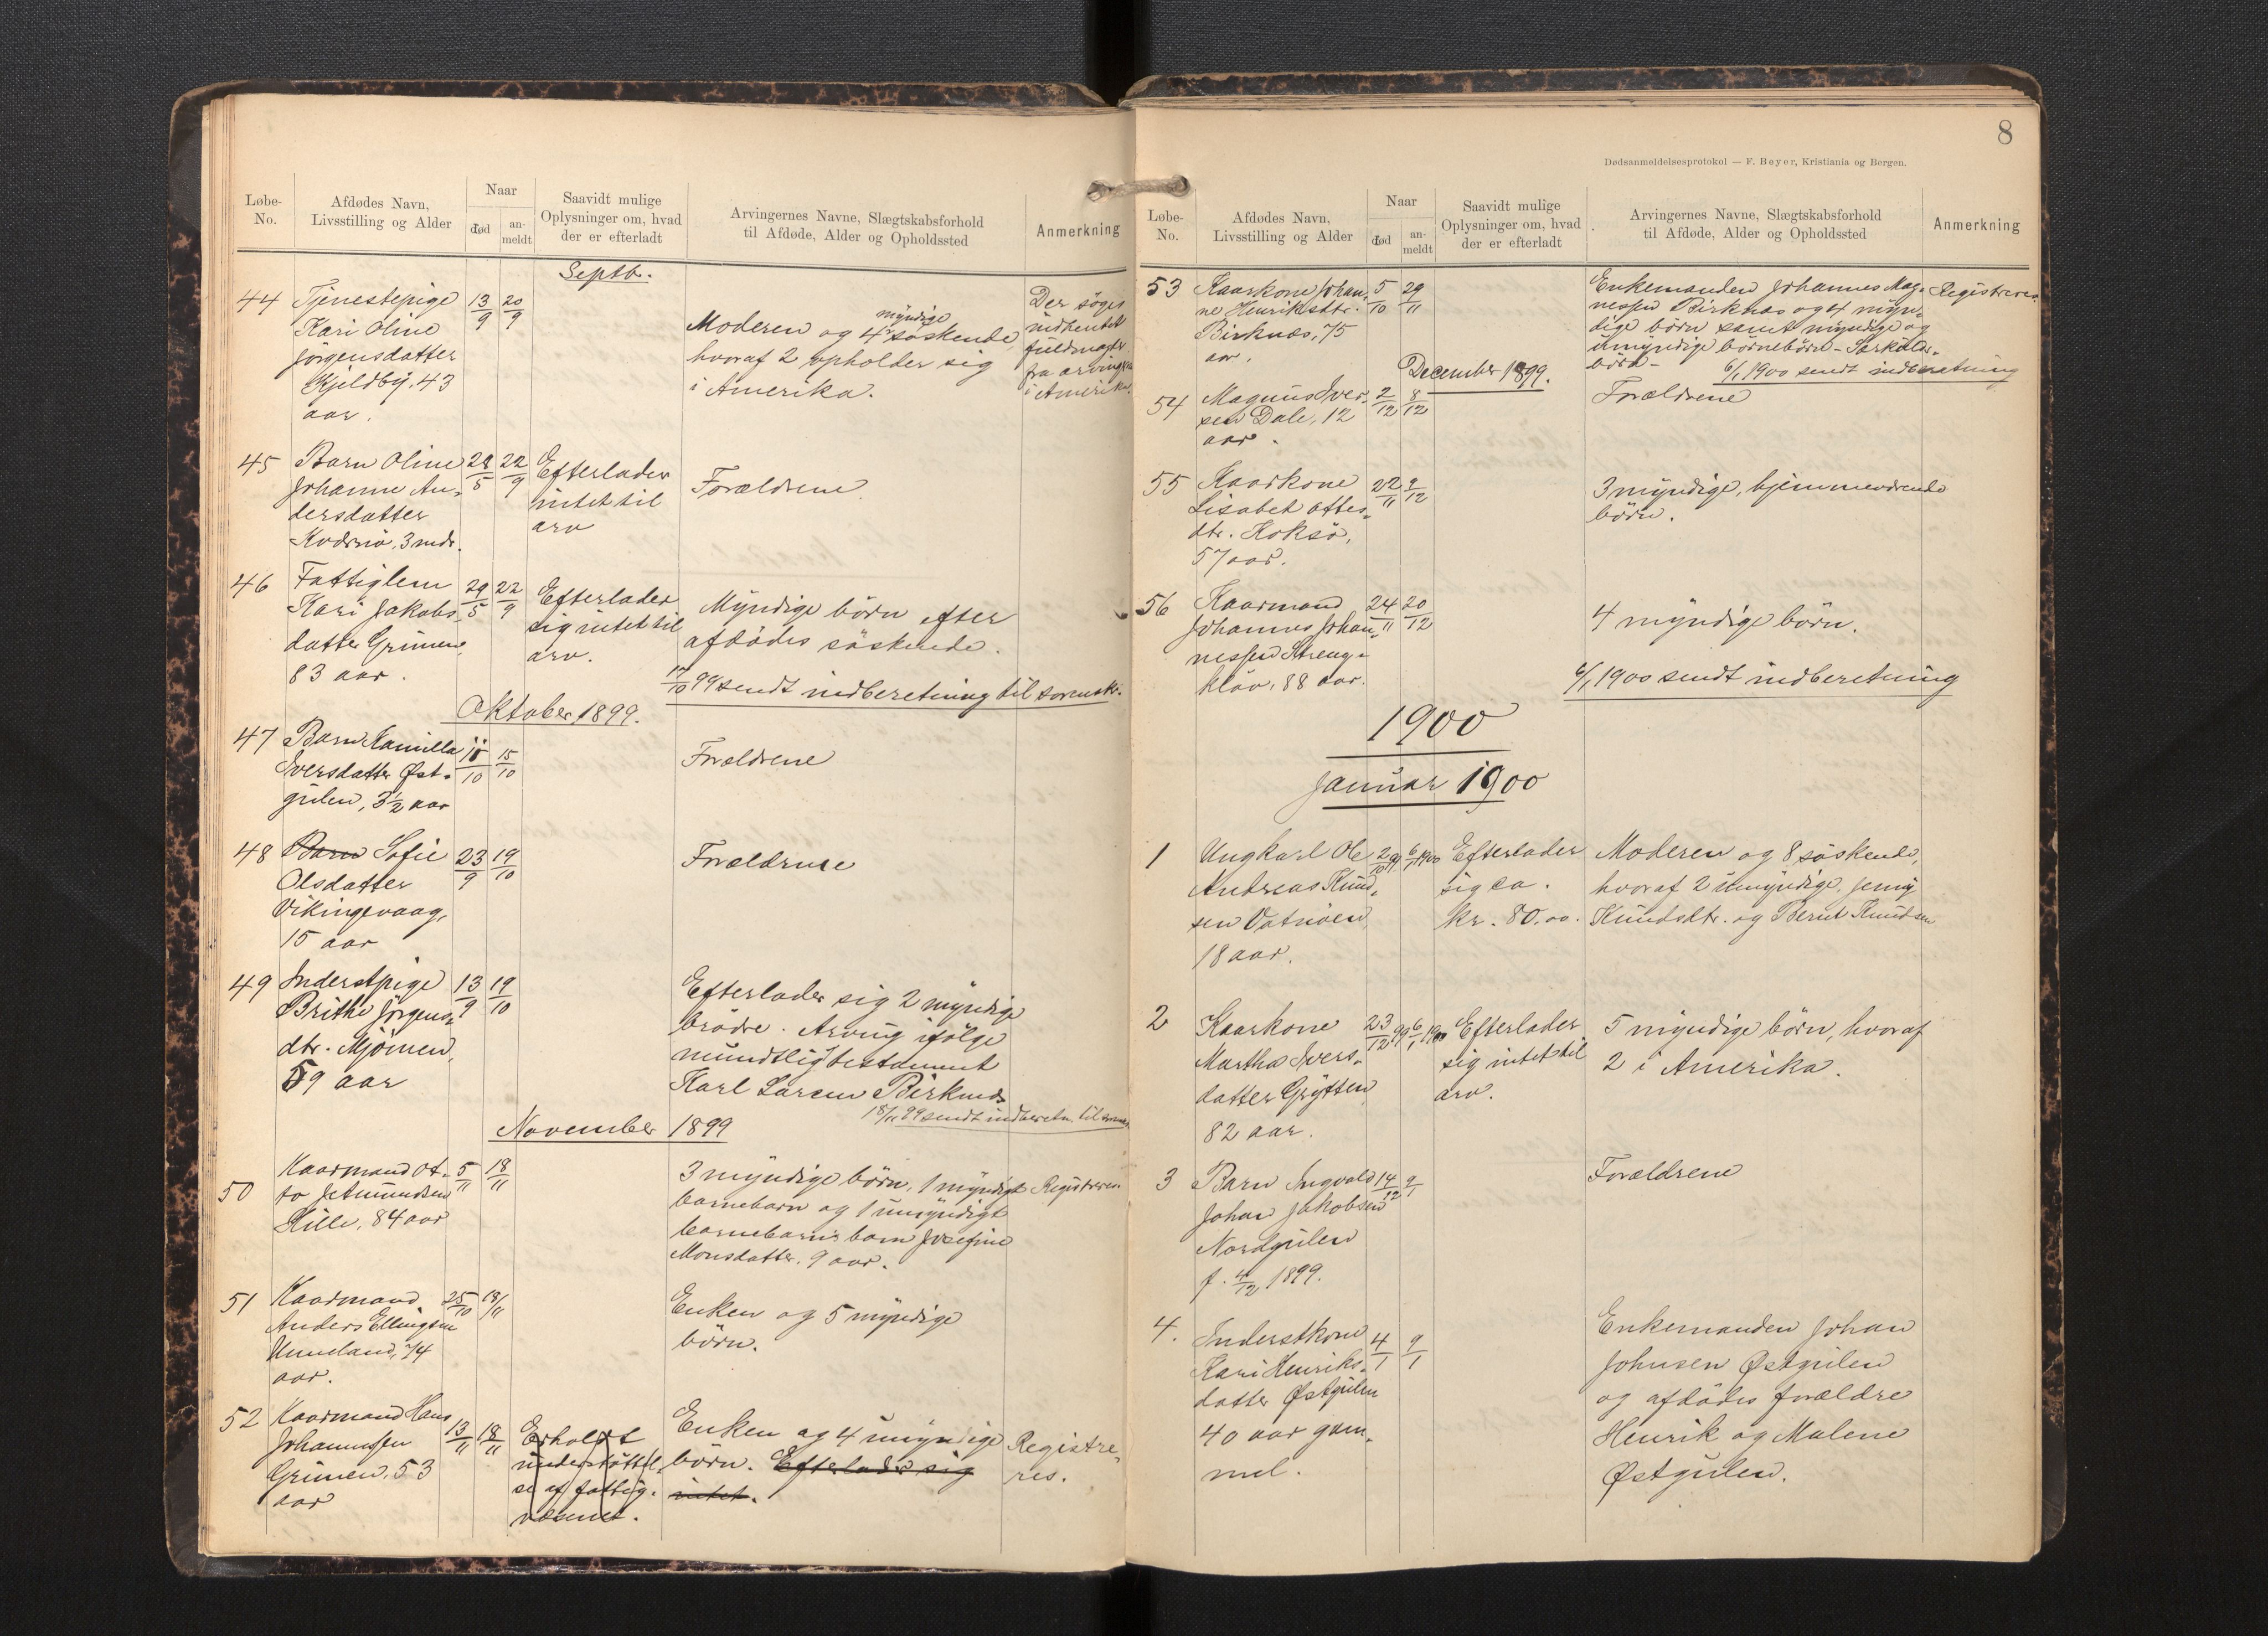 Løbe-
No.
Afdødes Navn,
Livsstilling og Alder
Naar
død
an-
meldt
Saavidt mulige
Oplysninger om, hvad
der er efterladt
Arvingernes Navne, Slægtskabsforhold
til Afdøde, Alder og Opholdssted
Anmerkning
Septb.
44
Tjenestepige
Kari Oline
Jørgensdatter
Kjeldby, 43
aar.
13/9
20/9
myndige
Moderen og 4 söskende,
hvoraf 2 opholder sig
i Amerika.
Der söges
indhentet
fuldmagt
fra arvingen
i Amerika.
45
Barn Oline
Johanne An-
dersdatter
Kversiö, 3 mdr.
28/5
22/9
Efterlader
intet til
arv
Forældrene
46
Fattiglem
Kari Jakobs-
datter Grimen,
83 aar.
29/5
22/9
Efterlader
sig intet til
arv.
Myndige börn efter
afdödes söskende.
17/10 99 sendt indberetning til sorensk.
Oktober 1899.
47
Barn Kamilla
Iversdatter Øst-
gulen, 3½ aar
11/10
15/10
Forældrene
48
Barn Sofie
Olsdatter
Vikingevaag,
15 aar
23/9
19/10
Forældrene
49
Inderstpige
Brithe Jörgens-
dtr. Mjömen,
59 aar
13/9
19/10
Efterlader sig 2 myndige
brödre. Arving ifölge
mundtligt testament
Karl Larsen Birknes
18/11 99 sendt indberetn. til sorensk.
November 1899
50
Kaarmand Ot-
to J. Amundsen
Hille, 84 aar
5/11
18/11
3 myndige börn, 1 myndigt
barnebarn og 1 umyndigt
barnebarns barn Josefine
Monsdatter, 9 aar.
Registreres
51
Kaarmand
Anders Ellingsen
Unneland, 74
aar.
25/10
18/11
Enken og 5 myndige
börn.
52
Kaarmand Hans
Johannessen
Grimen, 53
aar
13/11
18/11
Erholdt
understöttel-
se af fattig-
væsenet.
Enken og 4 umyndige
börn. Efterlader sig
intet.
Registre-
res.
8
Dødsanmeldelsesprotokol — F. Beyer, Kristiania og Bergen.
Løbe-
No.
Afdødes Navn,
Livsstilling og Alder
Naar
død
an-
meldt
Saavidt mulige
Oplysninger om, hvad
der er efterladt
Arvingernes Navne, Slægtskabsforhold
til Afdøde, Alder og Opholdssted
Anmerkning
53
Kaarkone Johan-
ne Henriksdtr.
Birknes, 75
aar.
5/10
29/11
Enkemanden Johannes Mag-
nessen Birknes og 4 myn-
dige börn samt myndige og
umyndige börnebörn - Særkuls-
börn -
Registreres
6/1 1900 sendt indberetning
December 1899.
54
Magnus Iver-
sen Dale, 12
aar.
2/12
8/12
Forældrene
55
Kaarkone
Lisabet Ottes-
dtr. Koksö,
57 aar.
22/11
9/12
3 myndige, hjemmeværende
börn.
56
Kaarmand
Johannes Johan-
nessen Streng-
kläv, 88 aar.
24/11
20/12
4 myndige börn.
6/1 1900 sendt indberetning
1900
Januar 1900
1
Ungkarl Ole
Andreas Knud-
sen Vatnöen,
18 aar.
2/10 99
6/1 1900
Efterlader
sig ca.
kr. 80.00.
Moderen og 8 söskende,
hvoraf 2 umyndige, Jenny
Knudsdtr. og Bernt Knudsen
2
Kaarkone
Martha Ivers-
datter Grytten
82 aar.
23/12 99
6/1 1900
Efterlader
sig intet til
arv.
5 myndige börn, hvoraf
2 i Amerika.
3
Barn Ingvald
Johan Jakobsen
Nordgulen
f. 4/12 1899.
14/12
9/1
Forældrene
4.
Inderstkone
Kari Henriks-
datter Østgulen
40 aar gam-
mel.
4/1
9/1
Enkemanden Johan
Johnsen Østgulen
og afdödes forældre
Henrik og Malene
Østgulen.